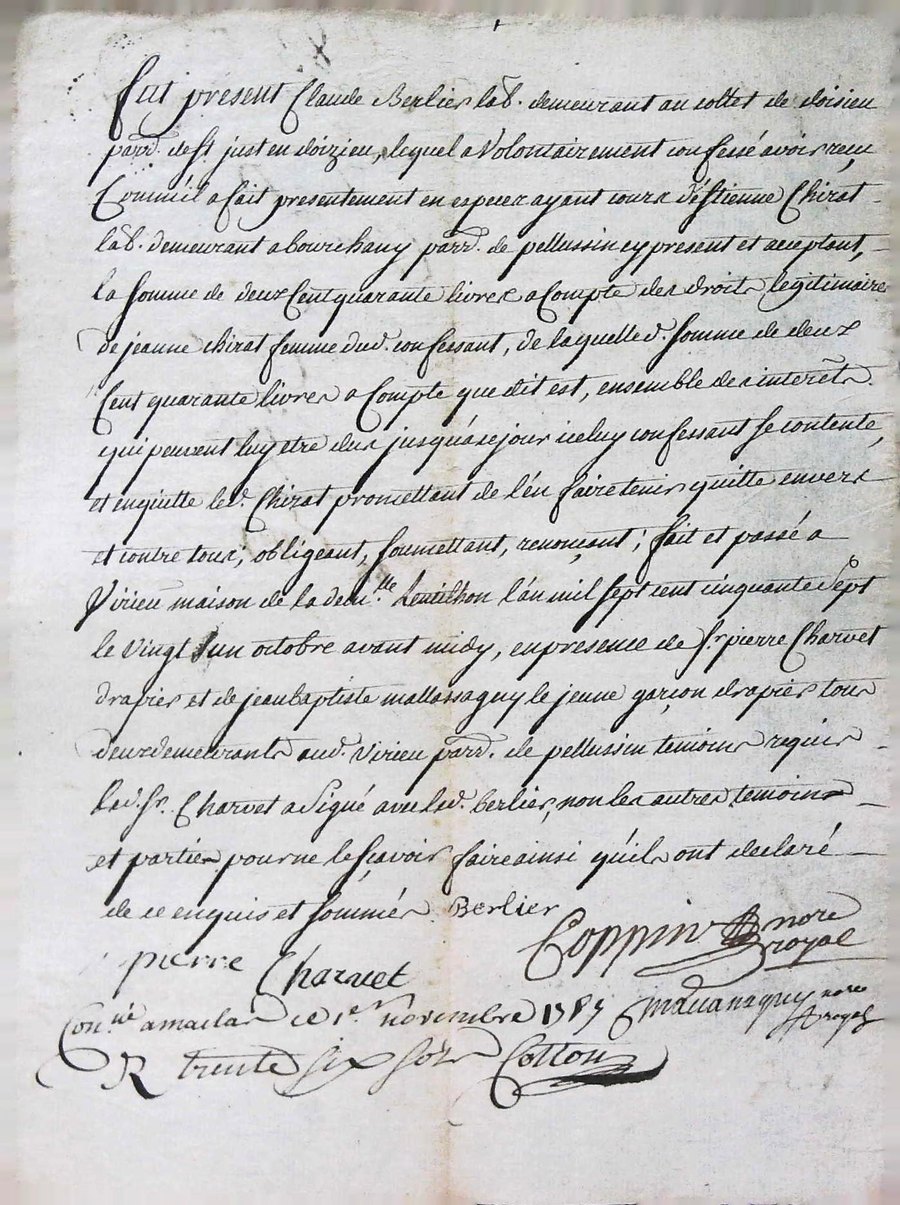 Fut present Claude Berlier lab.r demeurant au collet de doisieu
parr. de St just en doizieu, lequel a Volontairement confessé avoir reçu
Comme il a fait presentement en especes ayant cours d'Estienne Chirat
lab.r demeurant a bourchany parr. de pellussin cy present et aceptant,
la somme de deux Cent quarante livres a Compte des droits legitimaires
de jeanne chirat femme dud. confessant, de laquelle d. somme de deux
Cent quarante livres a Compte que dit est, ensemble des interêts
qui peuvent luy etre dus jusqu'a se jour iceluy confessant se contente,
et en quitte led. Chirat promettant de l'en faire tenir quitte envers
et contre tous; obligeant, soumettant, renonçant; fait et passé a
Virieu maison de la dem.lle Lentilhon l'an mil sept cent cinquante Sept
le Vingt un octobre avant midy, en presence de Sr pierre Charvet
drapier et de jean baptiste mallassagny le jeune garçon drapier tous
deux demeurants aud. Virieu parr. de pellussin temoins requis
led. Sr. Charvet a Signé avec led. berlier, non les autres temoins
et parties pour ne le sçavoir faire ainsi qu'ils ont declaré
de ce enquis et sommés. Berlier
Coppin nore royal
pierre Charvet
Con.lé a maclas ce 1er novembre 1757
nore royal
R trente six sols Cotton